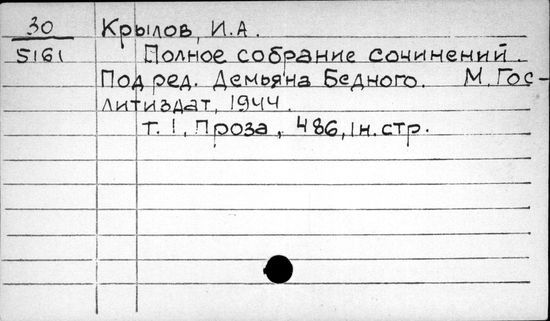 30 Крылов, И.А.
5161 Полное собрание сочинений.
Под ред. Демьяна Бедного. М. Гос-
литиздат, 1944.
т. 1, Проза, 486, 1н. стр.